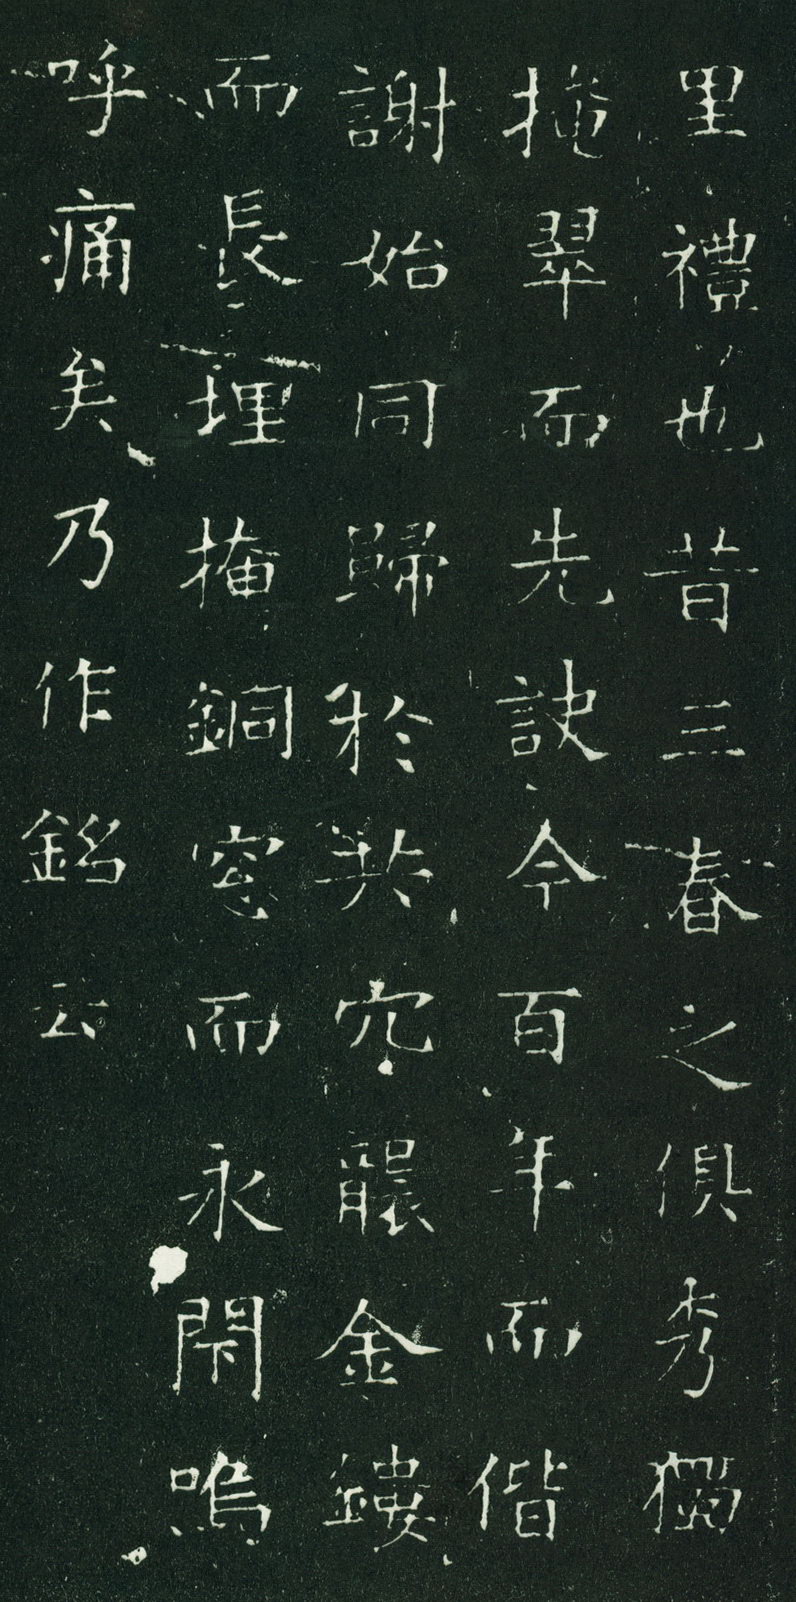 里禮也昔三春之俱秀獨
掩翠而先訣今百年而偕
謝始同歸於共穴金鏤
而長埋掩銅窓而永閇嗚
呼痛矣乃作銘云